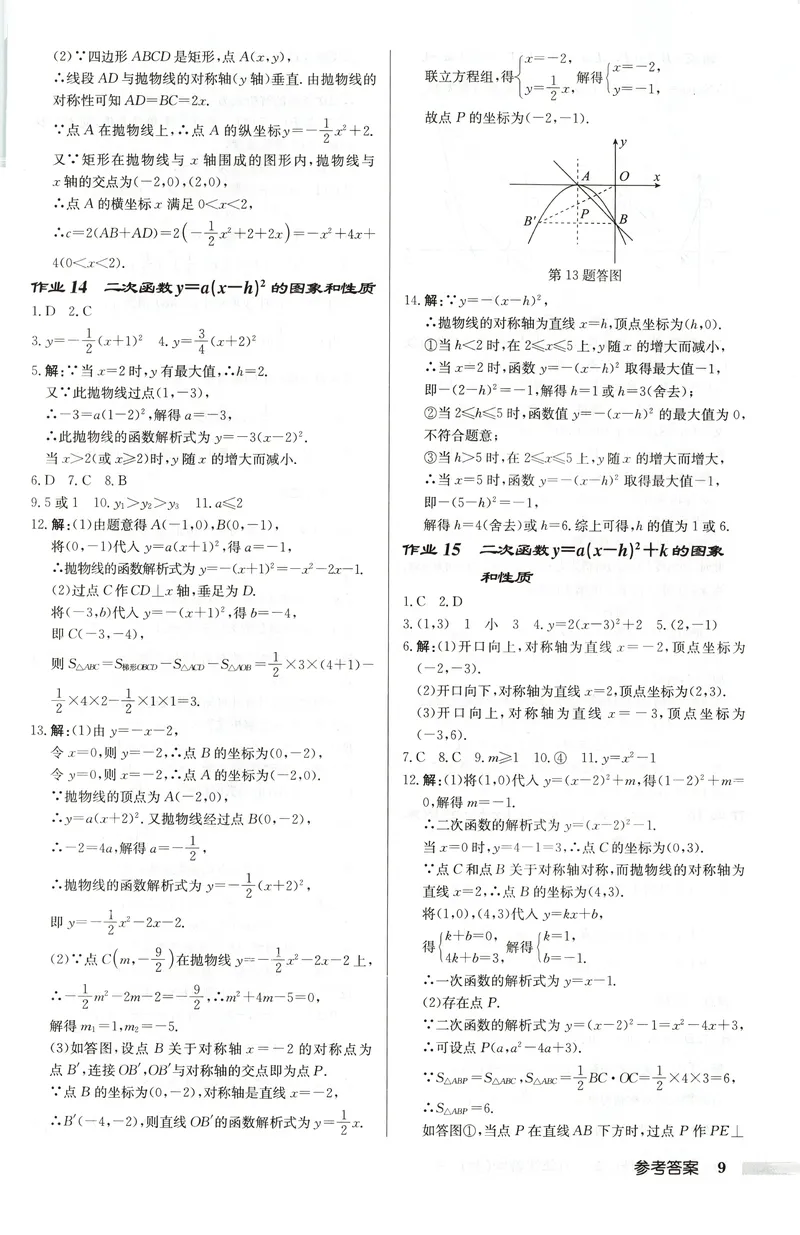 (2)∵四边形 ABCD 是矩形,点 A(x,y),
∴线段 AD 与抛物线的对称轴(y 轴)垂直. 由抛物线的
对称性可知 AD=BC=2x.
∵点 A 在抛物线上,∴点 A 的纵坐标y=-1/2x²+2.
又∵矩形在抛物线与 x 轴围成的图形内,抛物线与
x 轴的交点为(-2,0),(2,0),
∴点 A 的横坐标 x 满足 0<x<2,
∴c=2(AB+AD)=2(-1/2x²+2+2x)=-x²+4x+
4(0<x<2).
作业 14 二次函数 y=a(x-h)² 的图象和性质
1. D 2. C
3. y=-1/2(x+1)² 4. y=3/4(x+2)²
5. 解:∵当 x=2时,y 有最大值,∴h=2.
又∵此抛物线过点(1,-3),
∴-3=a(1-2)²,解得 a=-3,
∴此抛物线的函数解析式为 y=-3(x-2)².
当 x>2(或 x≥2)时,y 随 x 的增大而减小.
6. D 7. C 8. B
9. 5 或 1 10. y₁>y₂>y₃ 11. a≤2
12. 解:(1)由题意得 A(-1,0),B(0,-1),
将(0,-1)代入 y=a(x+1)²,得 a=-1,
∴抛物线的函数解析式为 y=-(x+1)²=-x²-2x-1.
(2)过点 C 作 CD⊥x 轴,垂足为 D.
将(-3,b)代入 y=-(x+1)²,得 b=-4,
即 C(-3,-4),
则 S△ABC=S梯形OBCD-S△ACD-S△AOB=1/2×3×(4+1)-
1/2×4×2-1/2×1×1=3.
13. 解:(1)由 y=-x-2,
令 x=0,则 y=-2,∴点 B 的坐标为(0,-2),
令 y=0,则 x=-2,∴点 A 的坐标为(-2,0).
∵抛物线的顶点为 A(-2,0),
∴y=a(x+2)². 又抛物线经过点 B(0,-2),
∴-2=4a,解得 a=-1/2,
∴抛物线的函数解析式为 y=-1/2(x+2)²,
即 y=-1/2x²-2x-2.
(2)∵点 C(m,-9/2)在抛物线 y=-1/2x²-2x-2 上,
∴-1/2m²-2m-2=-9/2,∴m²+4m-5=0,
解得 m₁=1,m₂=-5.
(3)如答图,设点 B 关于对称轴 x=-2 的对称点为
点 B′,连接 OB′,OB′与对称轴的交点即为点 P.
∵点 B 的坐标为(0,-2),对称轴是直线 x=-2,
∴B′(-4,-2),则直线 OB′的函数解析式为 y=1/2x.
联立方程组,得{x=-2, y=1/2x, 解得{x=-2, y=-1,
故点 P 的坐标为(-2,-1).
y
A O x
P
B′ B
第 13 题答图
14. 解:∵y=-(x-h)²,
∴抛物线的对称轴为直线 x=h,顶点坐标为(h,0).
①当 h<2 时,在 2≤x≤5 上,y 随 x 的增大而减小,
∴当 x=2 时,函数 y=-(x-h)² 取得最大值-1,
即-(2-h)²=-1,解得 h=1 或 h=3(舍去);
②当 2≤h≤5 时,函数值 y=-(x-h)² 的最大值为 0,
不符合题意;
③当 h>5 时,在 2≤x≤5 上,y 随 x 的增大而增大,
∴当 x=5 时,函数 y=-(x-h)² 取得最大值-1,
即-(5-h)²=-1,
解得 h=4(舍去)或 h=6. 综上可得,h 的值为 1 或 6.
作业 15 二次函数 y=a(x-h)²+k 的图象
和性质
1. C 2. D
3. (1,3) 1 小 3 4. y=2(x-3)²+2 5. (2,-1)
6. 解:(1)开口向上,对称轴为直线 x=-2,顶点坐标为
(-2,-3).
(2)开口向下,对称轴为直线 x=2,顶点坐标为(2,3).
(3)开口向上,对称轴为直线 x=-3,顶点坐标为
(-3,6).
7. C 8. C 9. m≥1 10. ④ 11. y=x²-1
12. 解:(1)将(1,0)代入 y=(x-2)²+m,得(1-2)²+m=
0,解得 m=-1.
∴二次函数的解析式为 y=(x-2)²-1.
当 x=0 时,y=4-1=3,∴点 C 的坐标为(0,3).
∵点 C 和点 B 关于对称轴对称,而抛物线的对称轴为
直线 x=2,∴点 B 的坐标为(4,3).
将(1,0),(4,3)代入 y=kx+b,
得{k+b=0, 4k+b=3, 解得{k=1, b=-1.
∴一次函数的解析式为 y=x-1.
(2)存在点 P.
∵二次函数的解析式为 y=(x-2)²-1=x²-4x+3,
∴可设点 P(a,a²-4a+3).
∵S△ABP=S△ABC,S△ABC=1/2BC·OC=1/2×4×3=6,
∴S△ABP=6.
如答图①,当点 P 在直线 AB 下方时,过点 P 作 PE⊥
参考答案 9